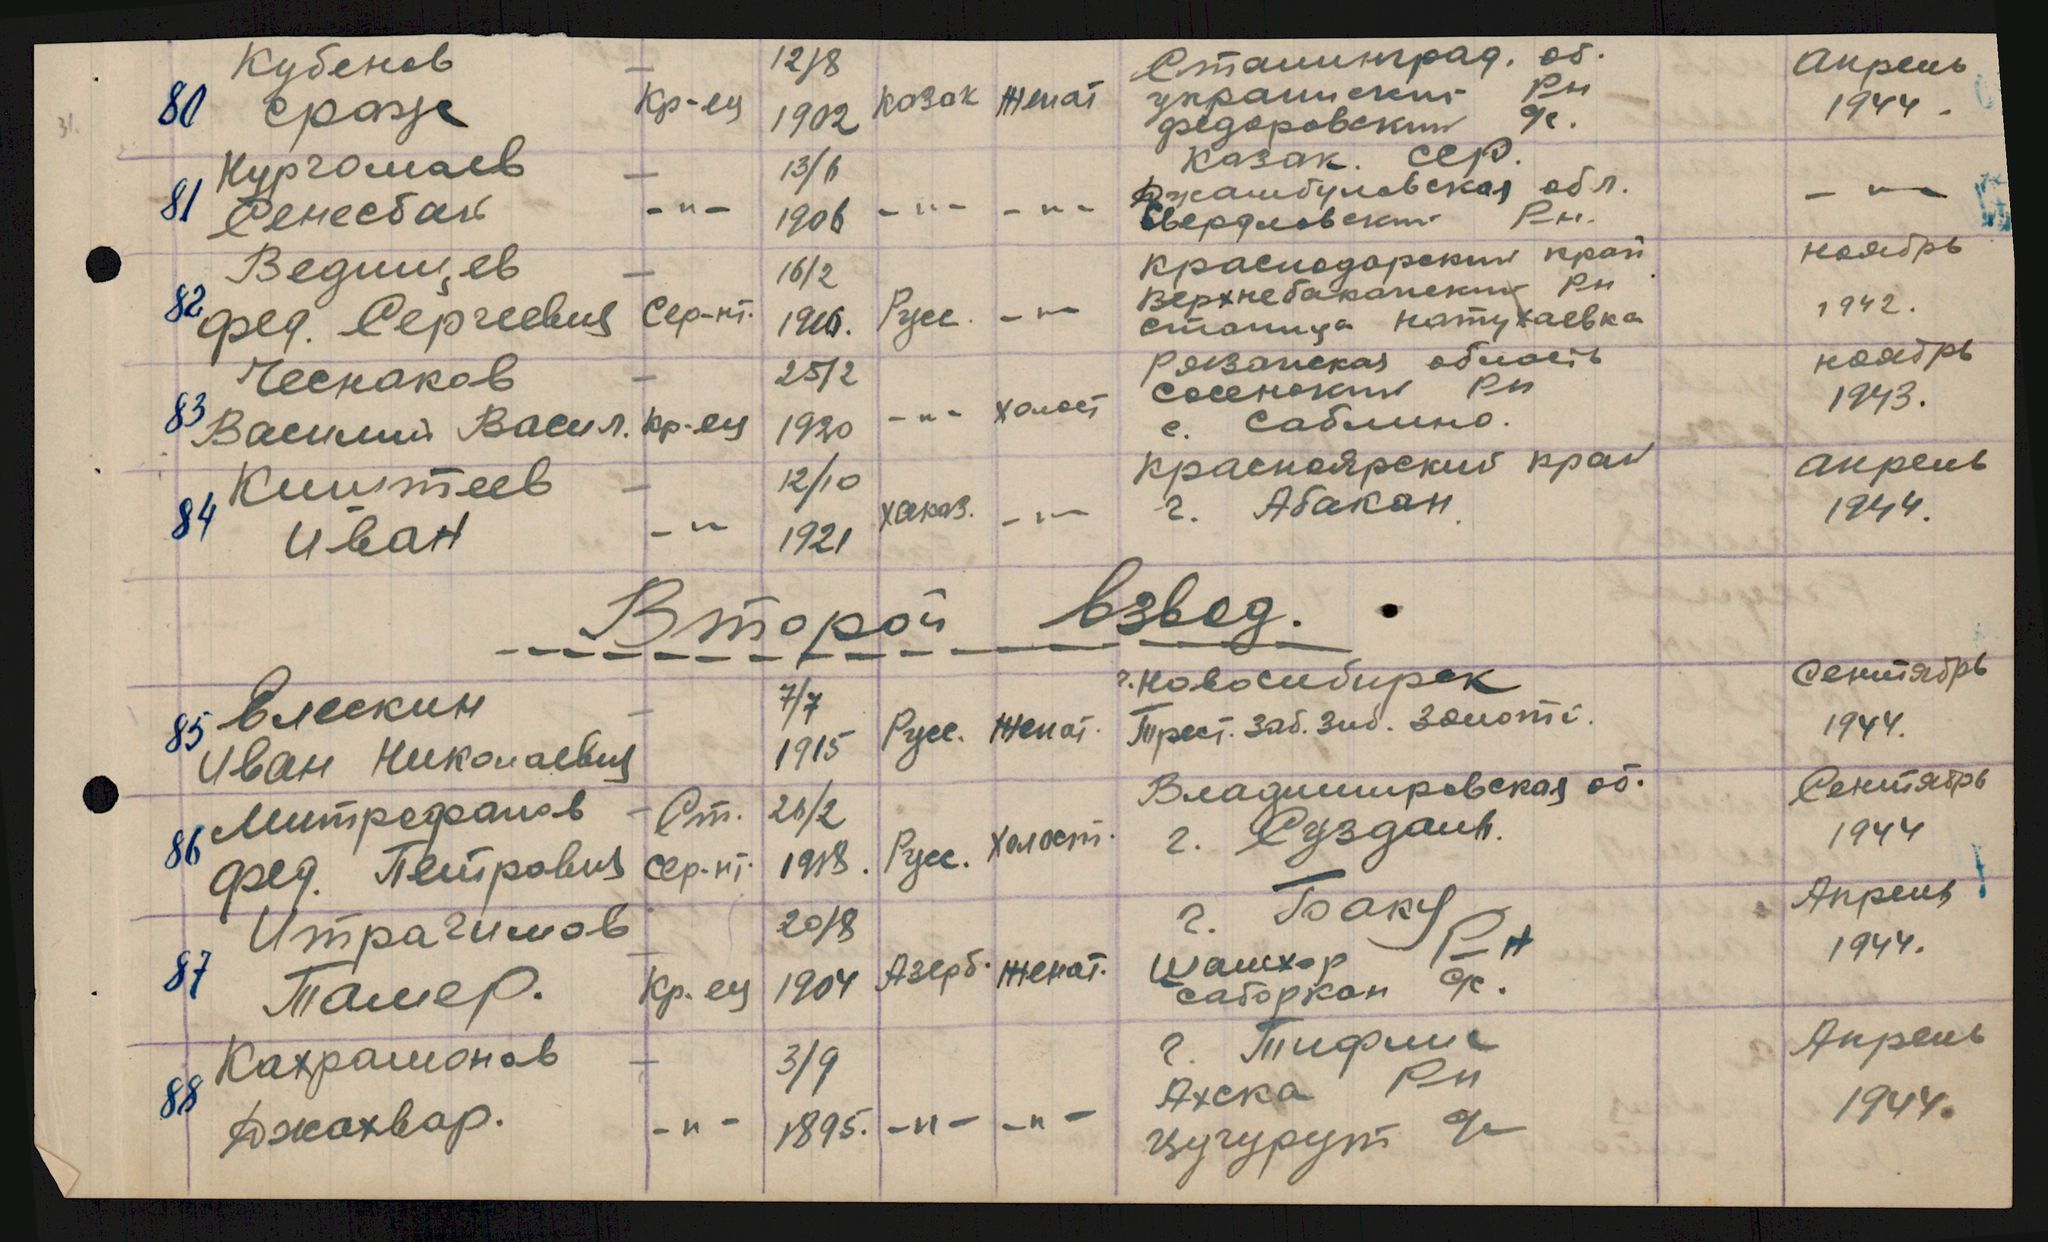 Кубенов — 12/8 Сталинград. об. Апрель
80 Сраже Кр-ец 1902 Казак Женат украинский Рн 1944.
федоровский ф/с.
Нургомаев — 13/6 Казак. ССР.
81 Сенесбай -"- 1906 -"- -"- Джамбуловская обл. -"-
Свердловский Рн.
Ведищев — 16/2 Краснодарский край ноябрь
82 фед. Сергеевич Сер-нт. 1916. Русс. -"- Верхнебаканский Рн 1942.
станица Натухаевка
Чеснаков — 25/2 Рязанская область ноябрь
83 Василий Васил. Кр-ец 1920 -"- холост Сосенский Рн 1943.
с. Саблино.
Киштеев — 12/10 Красноярский край апрель
84 Иван -"- 1921 хаказ. -"- г. Абакан. 1944.
Второй взвод.
Влескин — 7/7 г. Новосибирск Сентябрь
85 Иван Николаевич 1915 Русс. Женат. Трест. Заб. Зиб. Золото. 1944.
Митрофанов — Ст. 26/2 Владимировская об. Сентябрь
86 фед. Петрович Сер-нт. 1918. Русс. Холост. г. Суздаль. 1944
Итрагимов — 20/8 г. Баку Апрель
87 Тамер. Кр. ец 1904 Азерб. Женат. Шамхор Р-н 1944.
саборкан ф/с.
Кахрамонов — 3/9 г. Тифлис Апрель
88 Джахвар. -"- 1895. -"- -"- Ахска Рн 1944.
Цугурут